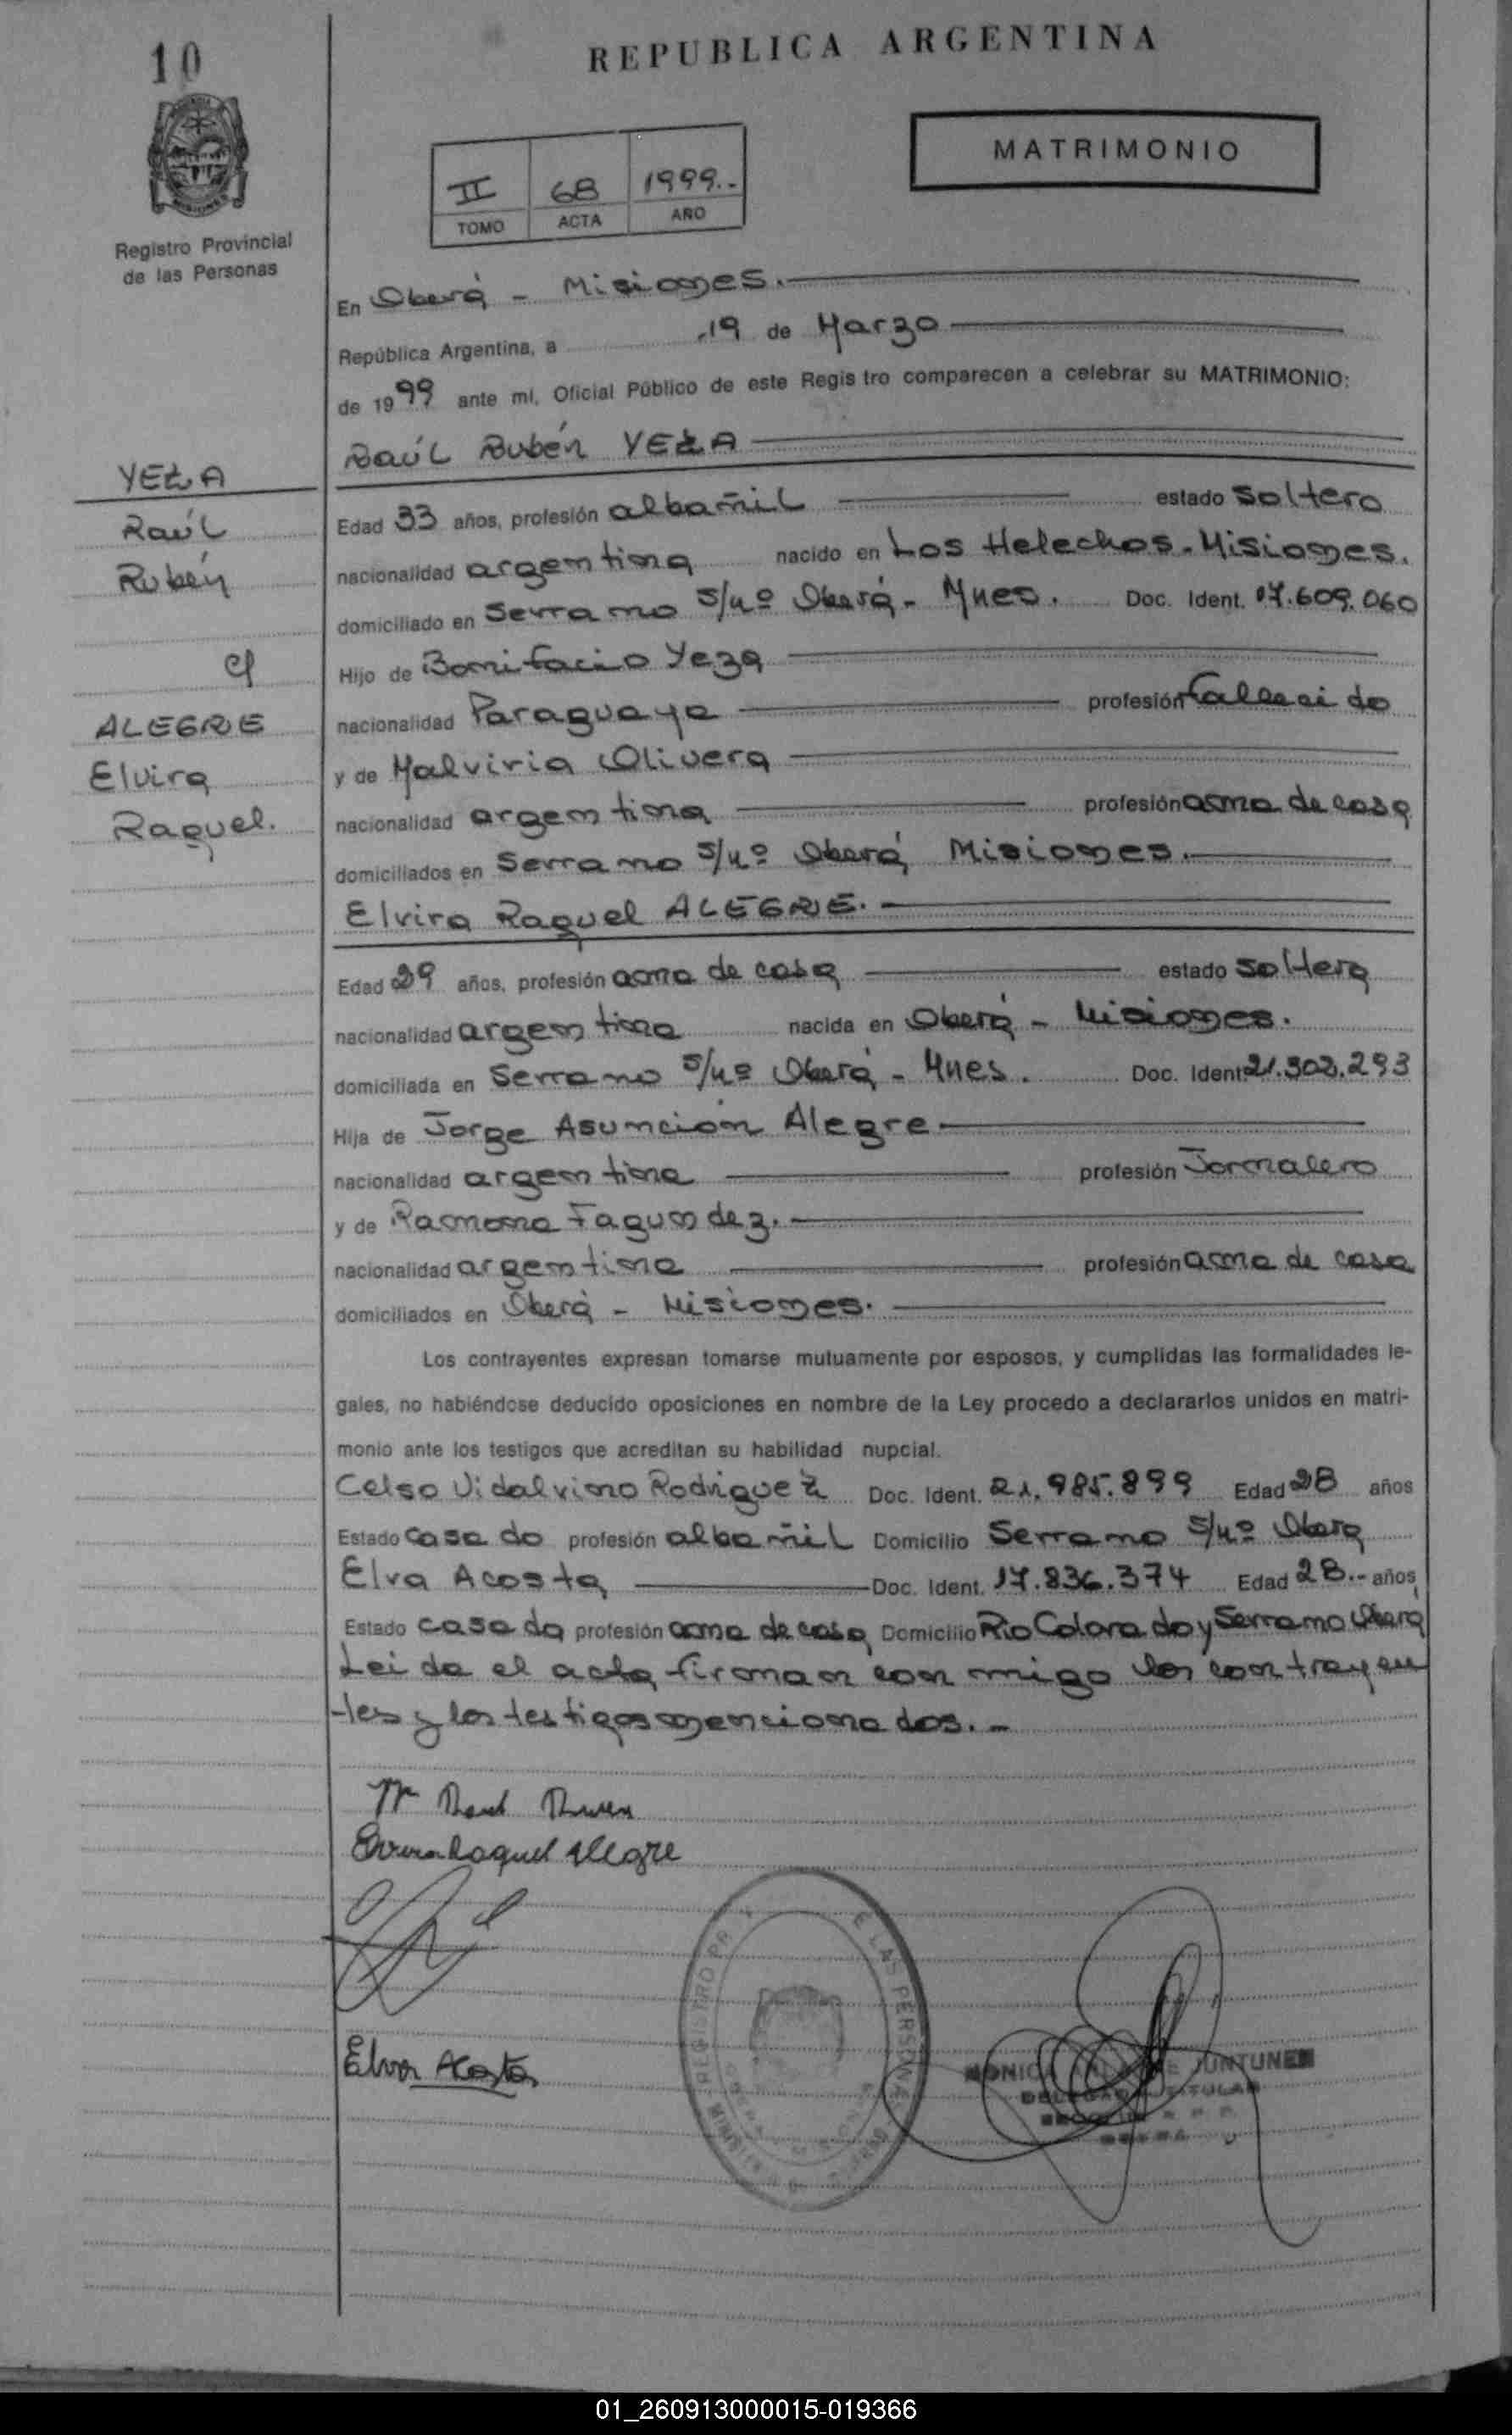 10
REPUBLICA ARGENTINA
MATRIMONIO
II 68 1999.-
TOMO ACTA AÑO
Registro Provincial
de las Personas
En Oberá - Misiones.
República Argentina, a 19 de Marzo
de 1999 ante mi, Oficial Público de este Registro comparecen a celebrar su MATRIMONIO:
Raúl Rubén YEZA
YEZA
Raúl
Rubén
c/
ALEGRE
Elvira
Raquel.
Edad 33 años, profesión albañil estado soltero
nacionalidad argentina nacido en Los Helechos - Misiones.
domiciliado en Serrano s/nº Oberá - Mnes. Doc. Ident. 17.609.060
Hijo de Bonifacio Yeza
nacionalidad Paraguaya profesión fallecido
y de Malviria Olivera
nacionalidad argentina profesión ama de casa
domiciliados en Serrano s/nº Oberá Misiones.
Elvira Raquel ALEGRE.
Edad 29 años, profesión ama de casa estado soltera
nacionalidad argentina nacida en Oberá - Misiones.
domiciliada en Serrano s/nº Oberá - Mnes. Doc. Ident. 21.302.293
Hija de Jorge Asunción Alegre
nacionalidad argentina profesión Jornalero
y de Ramona Fagundez.
nacionalidad argentina profesión ama de casa
domiciliados en Oberá - Misiones.
Los contrayentes expresan tomarse mutuamente por esposos, y cumplidas las formalidades le-
gales, no habiéndose deducido oposiciones en nombre de la Ley procedo a declararlos unidos en matri-
monio ante los testigos que acreditan su habilidad nupcial.
Celso Vidalvino Rodriguez Doc. Ident. 21.985.899 Edad 28 años
Estado casado profesión albañil Domicilio Serrano s/nº Oberá
Elva Acosta Doc. Ident. 17.836.374 Edad 28.- años
Estado casada profesión ama de casa Domicilio Rio Colorado y Serrano Oberá
Leida el acta, firman con migo los contrayen
tes y los testigos mencionados.-
Raul Ruben
Elvira Raquel Alegre
Elva Acosta
REGISTRO E LAS PERSONAS
JUNTUNEN
TITULAR
01_260913000015-019366